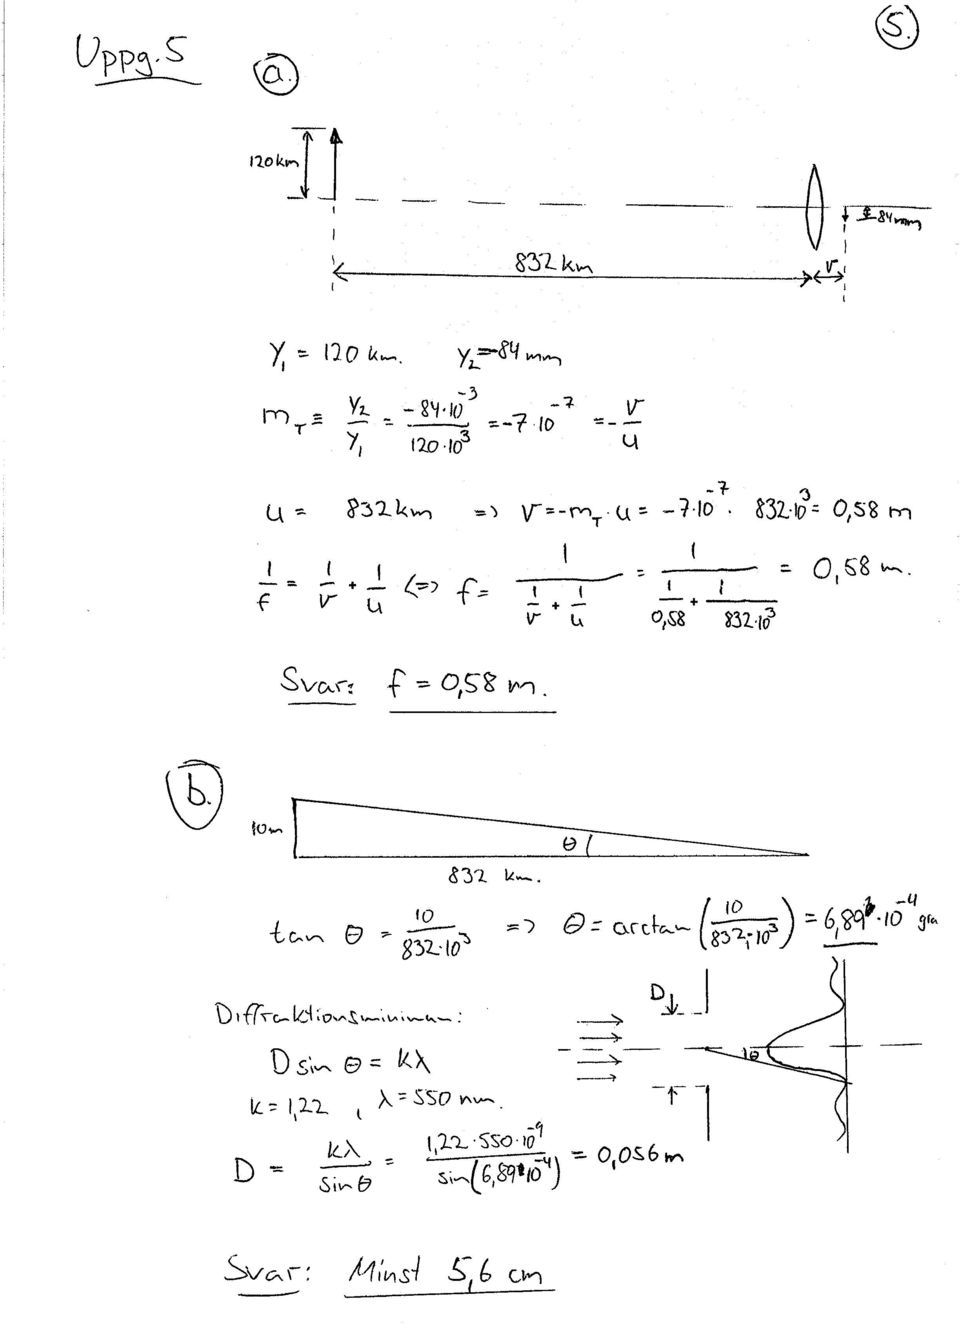 5.
Uppg. 5
a.
120 km
84 mm
832 km
v
Y₁ = 120 km. Y₂ = -84 mm
m_T ≡ Y₂/Y₁ = -84·10⁻³/120·10³ = -7·10⁻⁷ = -v/u
u = 832 km => v = -m_T·u = -7·10⁻⁷· 832·10³ = 0,58 m
1/f = 1/v + 1/u <=> f = 1/(1/v + 1/u) = 1/(1/0,58 + 1/832·10³) = 0,58 m.
Svar: f = 0,58 m.
b.
10 m
θ
832 km.
tan θ = 10/832·10³ => θ = arctan(10/832·10³) = 6,89·10⁻⁴ gra
Diffraktionsminimum:
D
θ
D sin θ = kλ
k = 1,22 , λ = 550 nm.
D = kλ/sin θ = 1,22·550·10⁻⁹/sin(6,89·10⁻⁴) = 0,056 m
Svar: Minst 5,6 cm